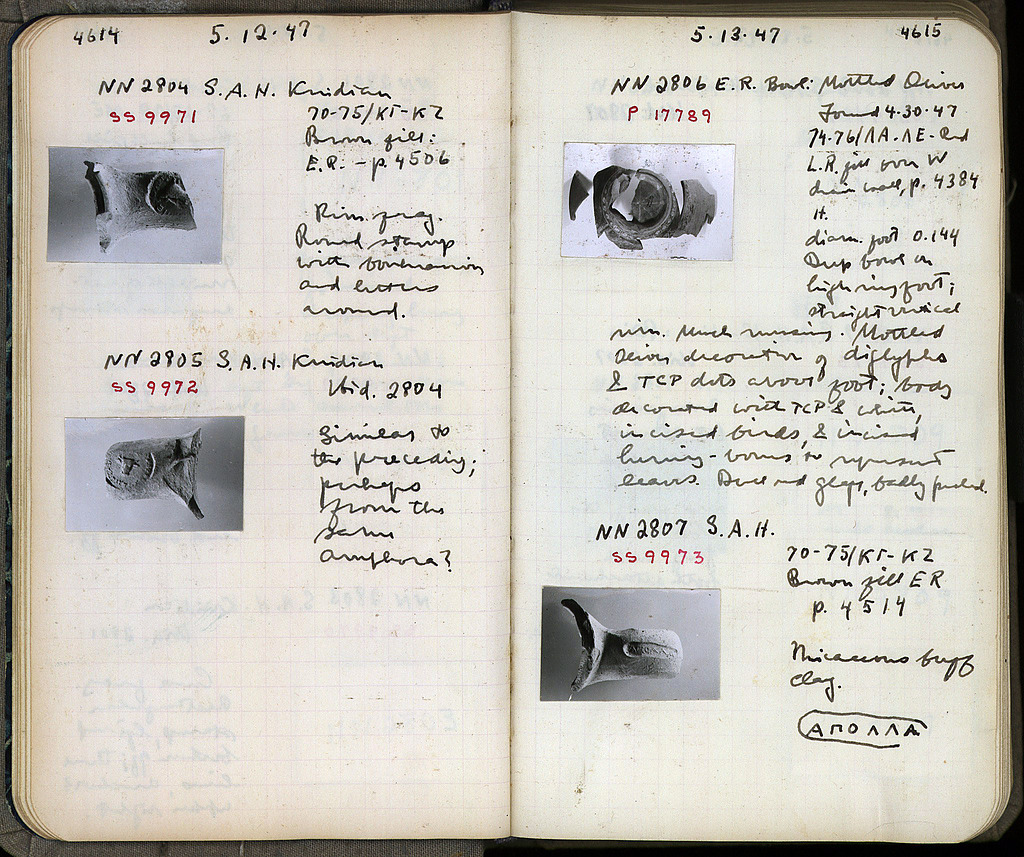 4614
5.12.47
NN 2804 S.A.H. Knidian
SS 9971
70-75/ΚΓ-ΚΖ
Brown fill:
E.R. - p. 4506
Rim frag.
Round stamp
with
and letters
around.
NN 2805 S.A.H. Knidian
SS 9972
Ibid. 2804
Similar to
the preceding;
perhaps
from the
same
amphora?
5.13.47
4615
NN 2806 E.R. Bowl: Mottled
P 17789
Found 4-30-47
74-76/ΛΑ-ΛΕ-
L.R. fill over W
drain wall, p. 4384
H.
diam. foot 0.144
Deep bowl on
high ring foot;
straight vertical
rim. Much missing. Mottled
decoration of diglyphs
& TCP dots above foot; body
decorated with TCP & white,
incised birds, & incised
to represent
leaves. Dull red glaze, badly peeled.
NN 2807 S.A.H.
SS 9973
70-75/ΚΓ-ΚΖ
Brown fill ER
p. 4514
Micaceous buff
clay.
ΑΠΟΛΛΑ